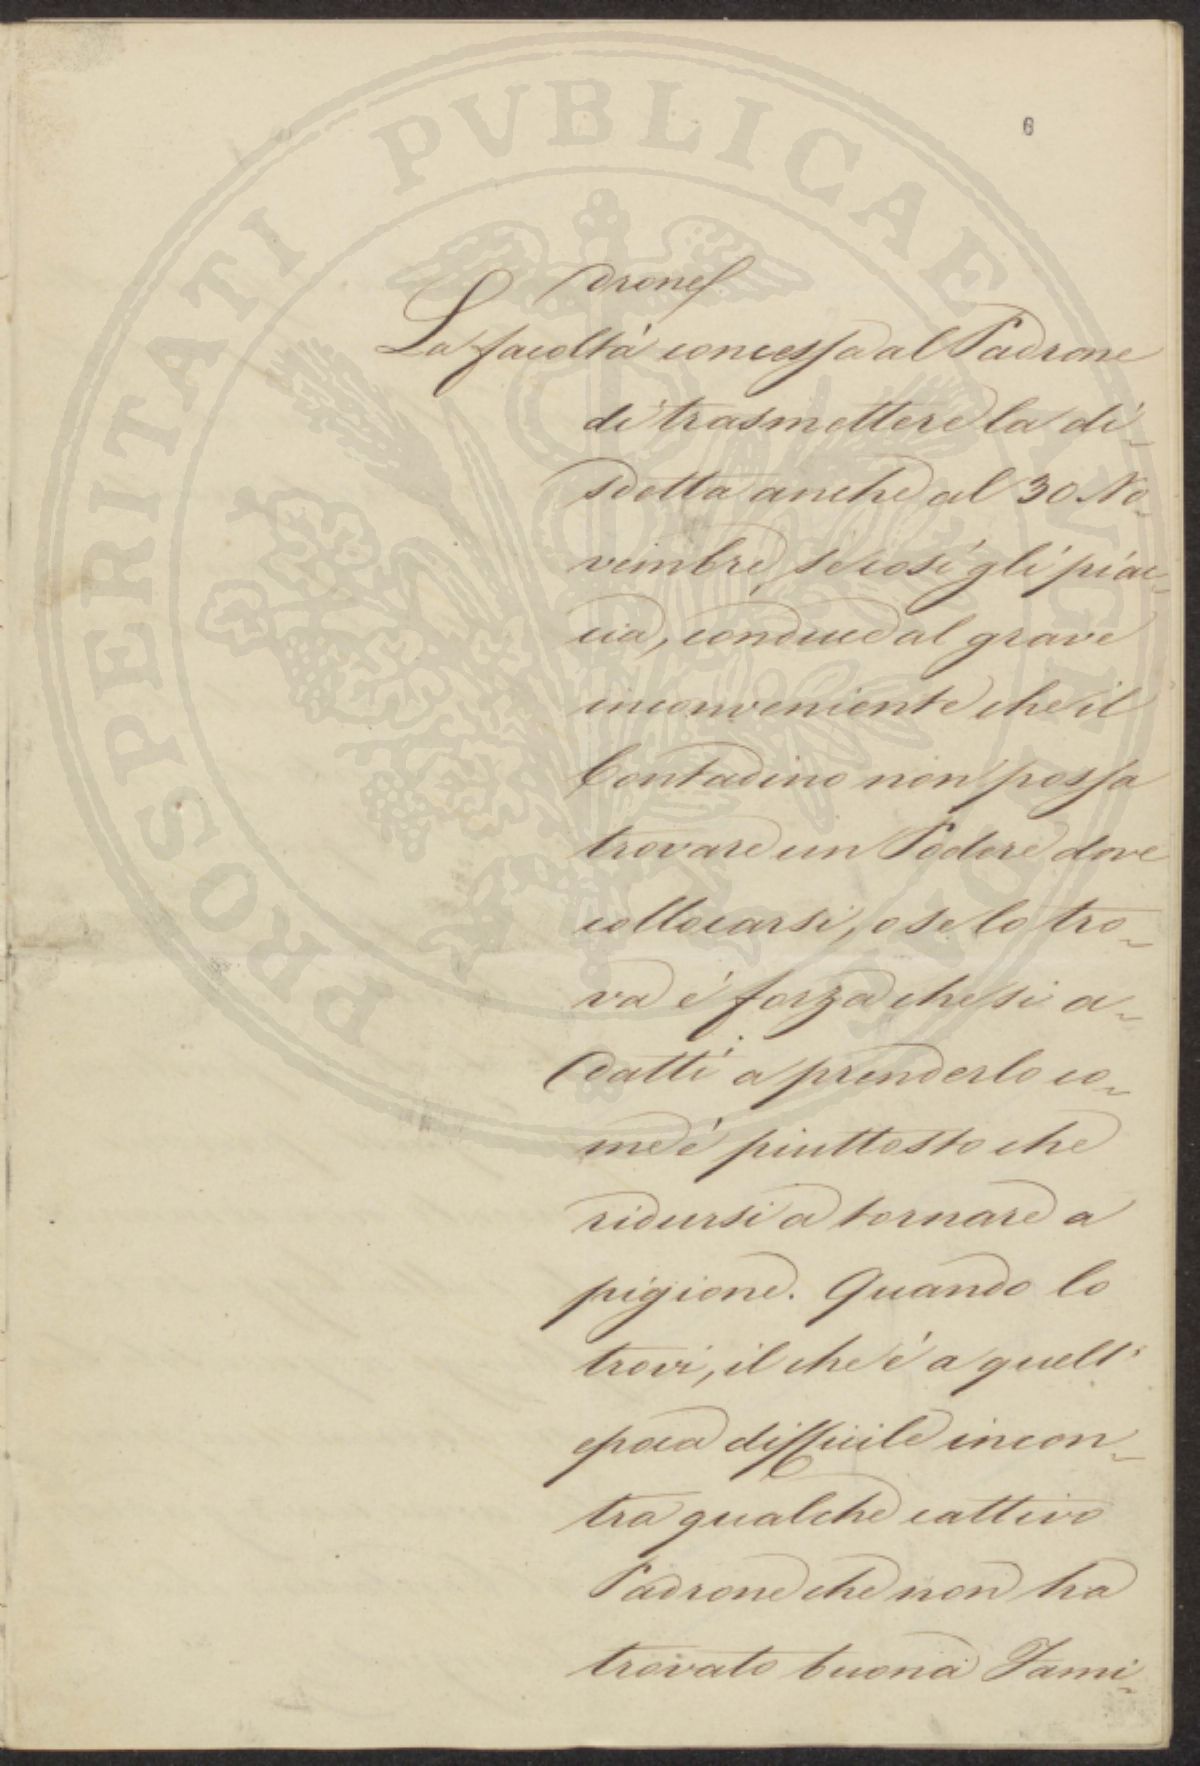 6
drone
La facoltà concessa al Padrone
di trasmettere la di-
sdetta anche al 30 No-
vembre, se così gli piac-
cia, conduce al grave
inconveniente che il
Contadino non possa
trovare un Podere dove
collocarsi, o se lo tro-
va è forza che si a-
datti a prenderlo co-
me è piuttosto che
ridursi a tornare a
pigione. Quando lo
trovi, il che è a quell'
epoca difficile incon-
tra qualche cattivo
Padrone che non ha
trovato buona Fami-
PROSPERITATI PVBLICAE